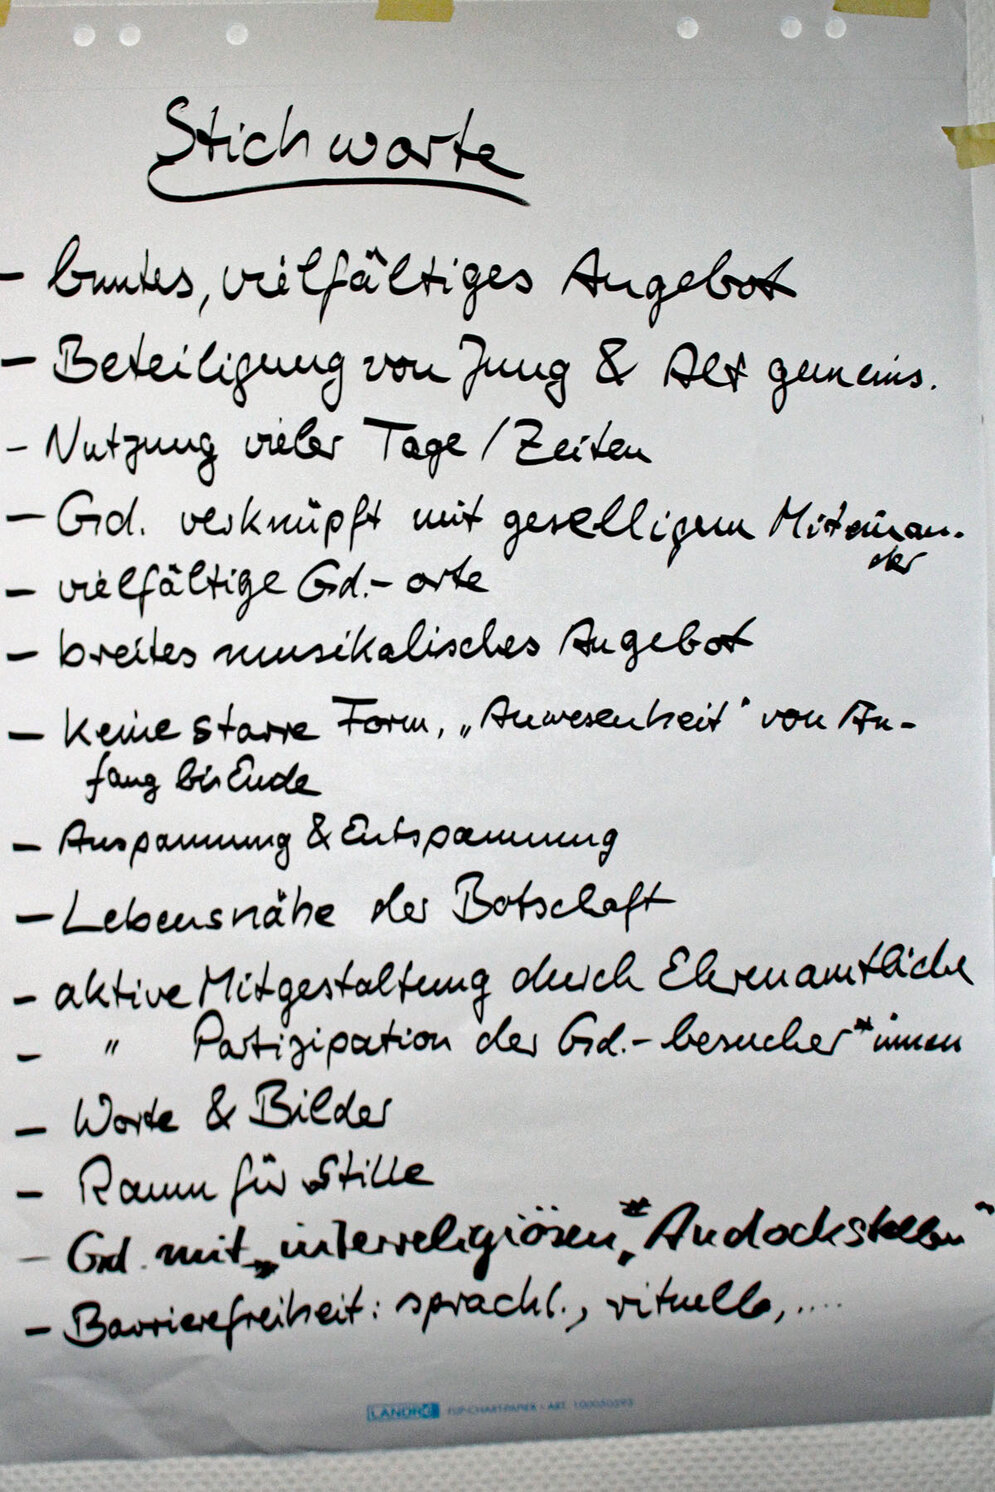 Stichworte
- buntes, vielfältiges Angebot
- Beteiligung von Jung & Alt gemeins.
- Nutzung vieler Tage / Zeiten
- Gd. verknüpft mit geselligem Miteinan-
der
- vielfältige Gd.-orte
- breites musikalisches Angebot
- keine starre Form, „Anwesenheit" von An-
fang bis Ende
- Anspannung & Entspannung
- Lebensnähe der Botschaft
- aktive Mitgestaltung durch Ehrenamtliche
- " Partizipation der Gd.-besucher*innen
- Worte & Bilder
- Raum für Stille
- Gd. mit „interreligiösen" „Andockstellen"
- Barrierefreiheit: sprachl., rituelle, .....
LANDRÉ FLIP-CHART-PAPIER • ART. 100050593